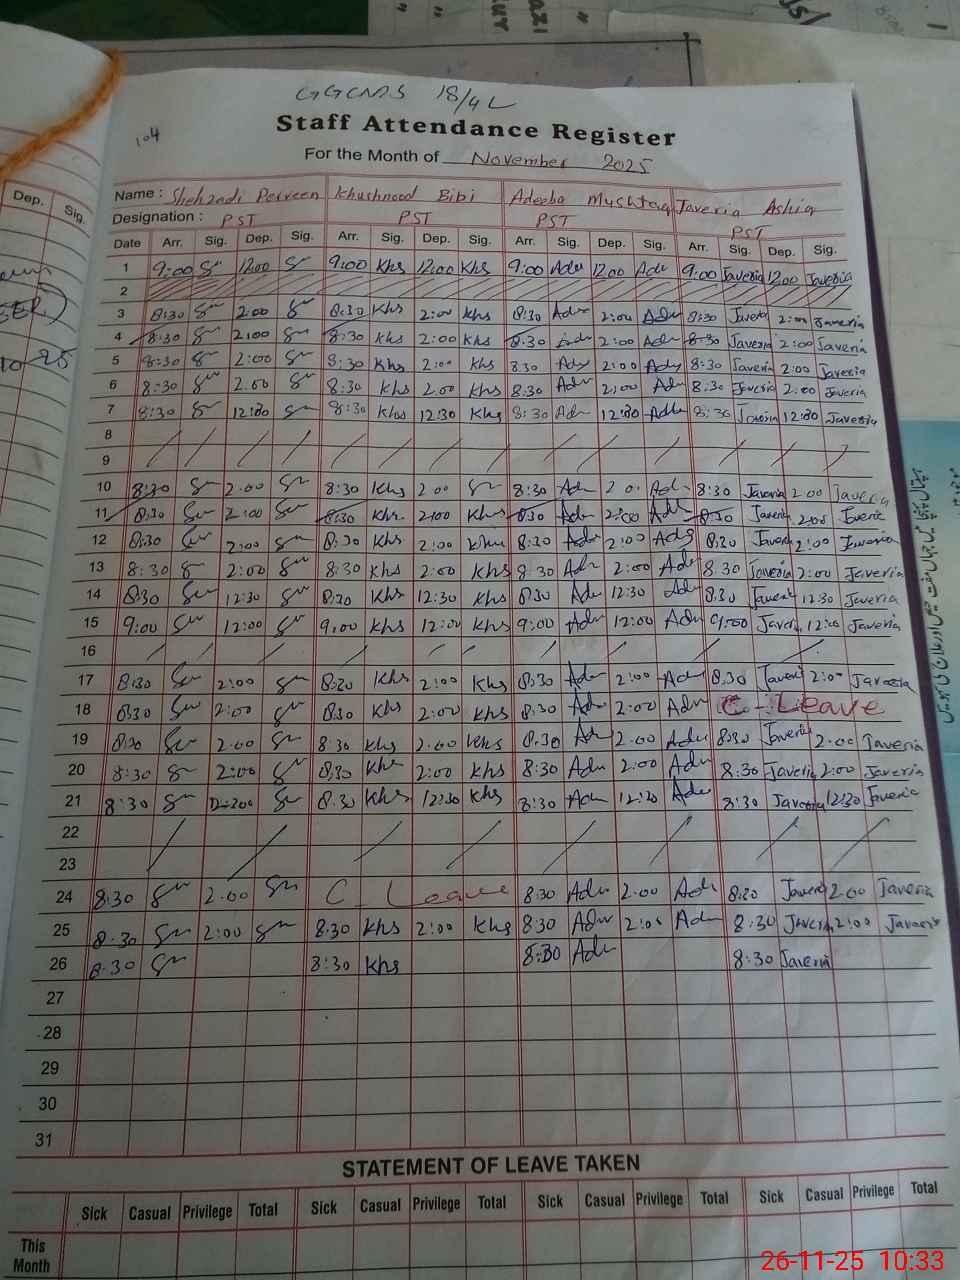 GGCMS 18/4L
104
Staff Attendance Register
For the Month of November 2025
Dep. Sig.
Name : Shehzadi Perveen Khushnood Bibi Adeeba Mushtaq Javeria Ashiq
Designation : PST PST PST PST
Date Arr. Sig. Dep. Sig. Arr. Sig. Dep. Sig. Arr. Sig. Dep. Sig. Arr. Sig. Dep. Sig.
1 9:00 12:00 9:00 Khs 12:00 Khs 9:00 Adu 12:00 Adu 9:00 Javeria 12:00 Javeria
2
3 8:30 2:00 8:30 Khs 2:00 Khs 8:30 Adu 2:00 Adu 8:30 Javeria 2:00 Javeria
4 8:30 2:00 8:30 Khs 2:00 Khs 8:30 Adu 2:00 Adu 8:30 Javeria 2:00 Javeria
5 8:30 2:00 8:30 Khs 2:00 Khs 8:30 Adu 2:00 Adu 8:30 Javeria 2:00 Javeria
6 8:30 2:00 8:30 Khs 2:00 Khs 8:30 Adu 2:00 Adu 8:30 Javeria 2:00 Javeria
7 8:30 12:30 8:30 Khs 12:30 Khs 8:30 Adu 12:30 Adu 8:30 Javeria 12:30 Javeria
8
9
10 8:30 2:00 8:30 Khs 2:00 8:30 Adu 2:00 Adu 8:30 Javeria 2:00 Javeria
11 8:30 2:00 8:30 Khs 2:00 Khs 8:30 Adu 2:00 Adu 8:30 Javeria 2:00 Javeria
12 8:30 2:00 8:30 Khs 2:00 Khs 8:30 Adu 2:00 Adu 8:30 Javeria 2:00 Javeria
13 8:30 2:00 8:30 Khs 2:00 Khs 8:30 Adu 2:00 Adu 8:30 Javeria 2:00 Javeria
14 8:30 12:30 8:30 Khs 12:30 Khs 8:30 Adu 12:30 Adu 8:30 Javeria 12:30 Javeria
15 9:00 12:00 9:00 Khs 12:00 Khs 9:00 Adu 12:00 Adu 9:00 Javeria 12:00 Javeria
16
17 8:30 2:00 8:30 Khs 2:00 Khs 8:30 Adu 2:00 Adu 8:30 Javeria 2:00 Javeria
18 8:30 2:00 8:30 Khs 2:00 Khs 8:30 Adu 2:00 Adu C - Leave
19 8:30 2:00 8:30 Khs 2:00 Khs 8:30 Adu 2:00 Adu 8:30 Javeria 2:00 Javeria
20 8:30 2:00 8:30 Khs 2:00 Khs 8:30 Adu 2:00 Adu 8:30 Javeria 2:00 Javeria
21 8:30 8:30 Khs 12:30 Khs 8:30 Adu 12:30 Adu 8:30 Javeria 12:30 Javeria
22
23
24 8:30 2:00 C - Leave 8:30 Adu 2:00 Adu 8:30 Javeria 2:00 Javeria
25 8:30 2:00 8:30 Khs 2:00 Khs 8:30 Adu 2:00 Adu 8:30 Javeria 2:00 Javeria
26 8:30 8:30 Khs 8:30 Adu 8:30 Javeria
27
28
29
30
31
STATEMENT OF LEAVE TAKEN
Sick Casual Privilege Total Sick Casual Privilege Total Sick Casual Privilege Total Sick Casual Privilege Total
This Month
26-11-25 10:33